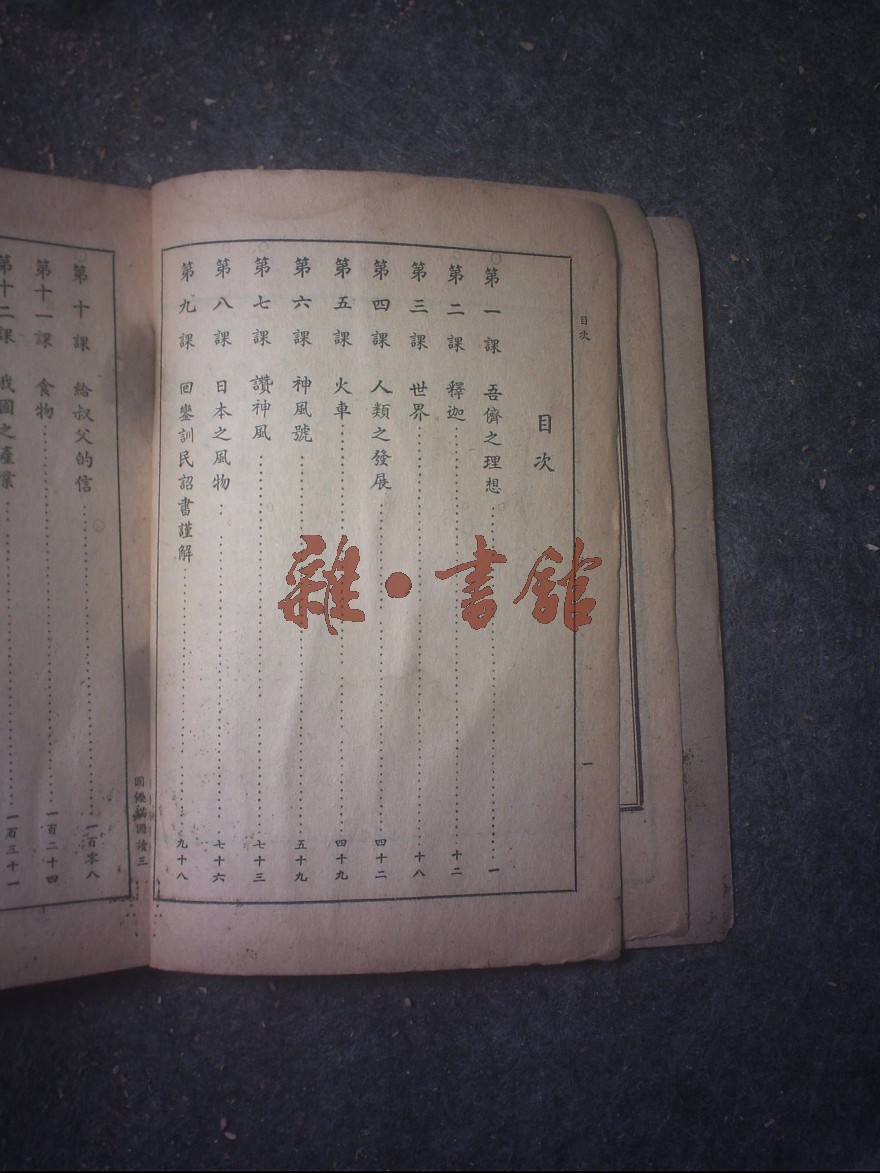 目次
目次
第一課 吾儕之理想 一
第二課 釋迦 十二
第三課 世界 十八
第四課 人類之發展 四十二
第五課 火車 四十九
第六課 神風號 五十九
第七課 讚神風 七十三
第八課 日本之風物 七十六
第九課 回鑾訓民詔書謹解 九十八
一
第十課 給叔父的信 一百零八
第十一課 食物 一百二十四
第十二課 我國之產業 一百三十一
雜·書館